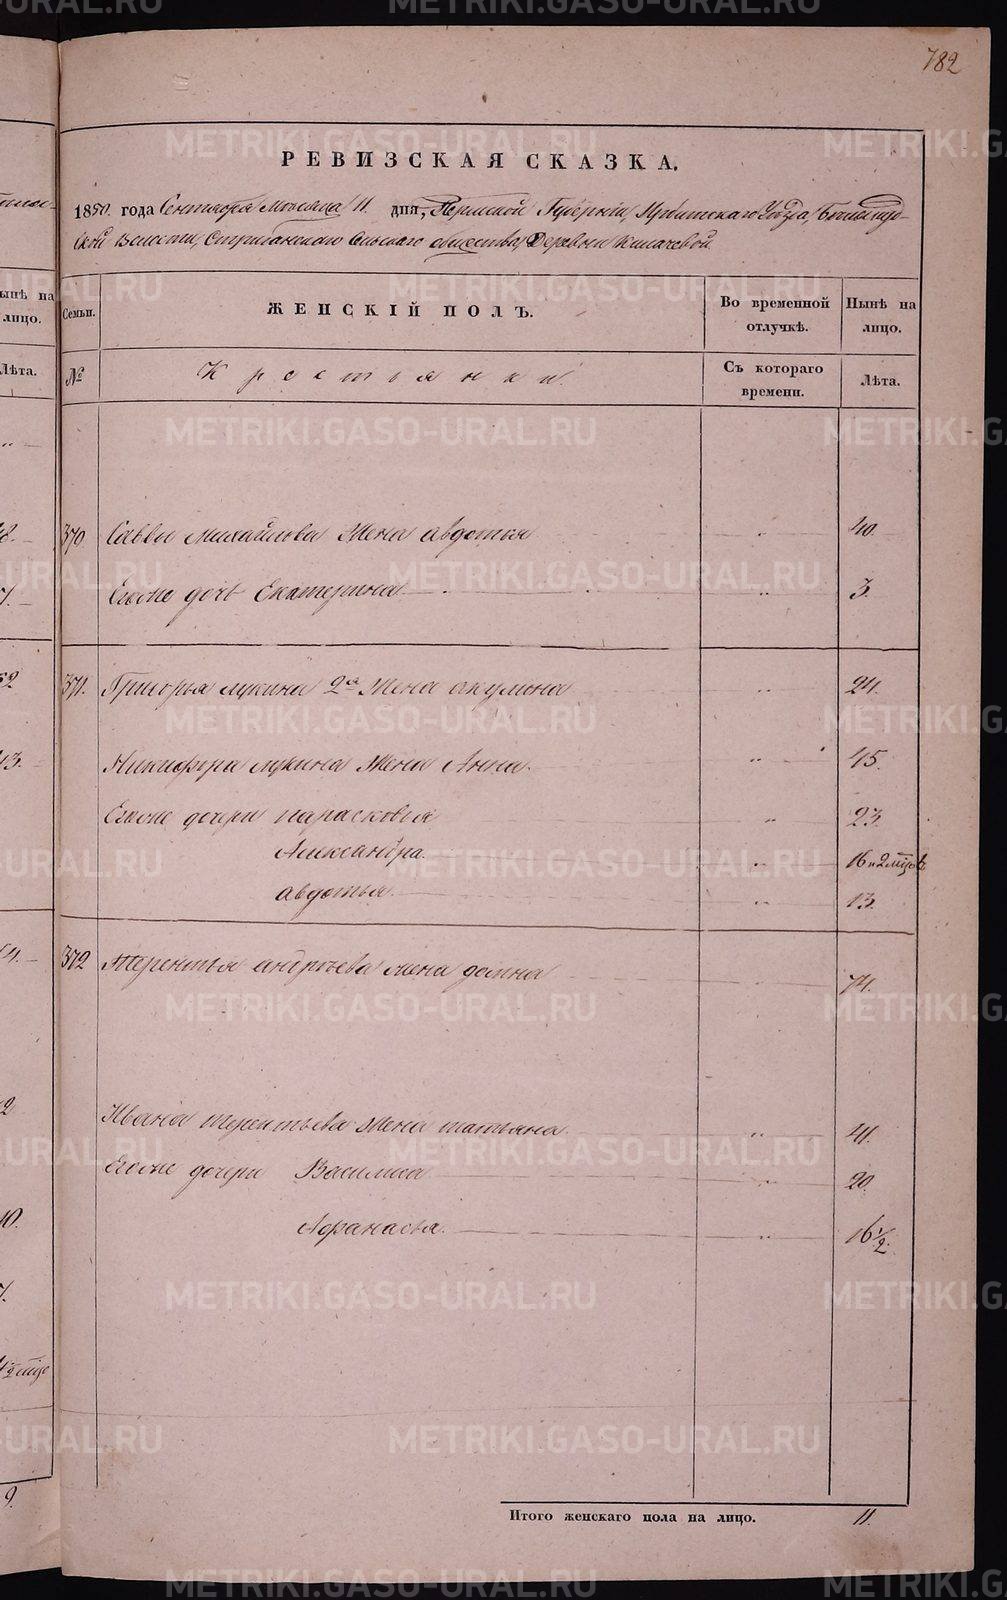 782
РЕВИЗСКАЯ СКАЗКА.
1850. года Сентября Месяца 11. дня, Пермской Губерніи, Ирбитскаго Уѣзда,
Волости, Стриганскаго Сельскаго общества, Деревни Кисачевой
Семьи.
ЖЕНСКІЙ ПОЛЪ.
Во временной отлучкѣ.
Нынѣ на лицо.
№
Крестьянки.
Съ котораго времени.
Лѣта.
370 Саввы Михайлова Жена авдотья " 40.
Егоже дочь Екатерина " 3.
371. Григорья лукина 2я Жена акулина " 24.
Никифора лукина Жена Анна. " 45.
Егоже дочери парасковья " 23.
Александра. " 16 и 2 мцовъ
авдотья. " 13.
372 Терентья андреева жена домна 74.
Ивана терентьева жена татьяна " 41.
Егоже дочери Василиса " 20.
Афанасья. " 16 1/2.
Итого женскаго пола на лицо. 11.
ынѣ на
лицо.
Лѣта.
METRIKI.GASO-URAL.RU